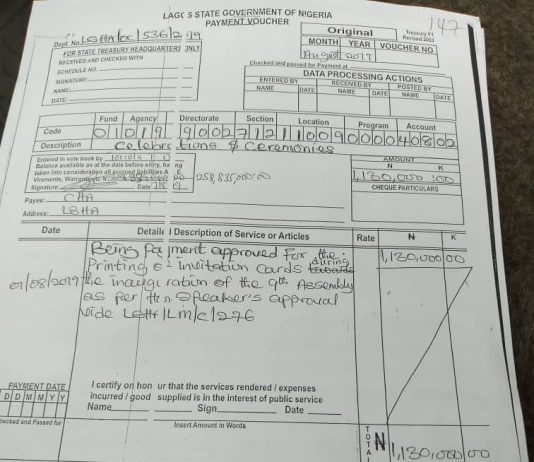 LAGOS STATE GOVERNMENT OF NIGERIA
PAYMENT VOUCHER
147
Dept. No. LSHA/OC/536/2019
Original
Treasury F1
Revised 2003
FOR STATE TREASURY HEADQUARTERS ONLY
RECEIVED AND CHECKED WITH
SCHEDULE NO.
SIGNATURE:
NAME:
DATE:
MONTH YEAR VOUCHER NO
August 2019
Checked and passed for Payment at
DATA PROCESSING ACTIONS
ENTERED BY RECEIVED BY POSTED BY
NAME DATE NAME DATE NAME DATE
Fund Agency Directorate Section Location Program Account
Code 0 1 0 1 9 9 0 0 2 7 1 2 1 1 0 0 9 0 0 0 0 4 0 8 0 2
Description Celebrations & Ceremonies
Entered in vote book by
Balance available as at the date before entry, having
taken into consideration all accrued liabilities
Virements, Warrants 258,835,000:00
Signature: Date
AMOUNT
N K
1,130,000 00
CHEQUE PARTICULARS
Payee: CHA
Address: LSHA
Date Detailed Description of Service or Articles Rate N K
Being Payment approved For the 1,130,000 00
Printing of invitation cards during
01/08/2019 the inauguration of the 9th Assembly
as per Hon Speaker's approval
vide LSHA/LM/C/276
PAYMENT DATE
D D M M Y Y
I certify on honour that the services rendered / expenses
incurred / good supplied is in the interest of public service
Name Sign Date
Checked and Passed for
Insert Amount in Words
TOTAL N 1,130,000 00